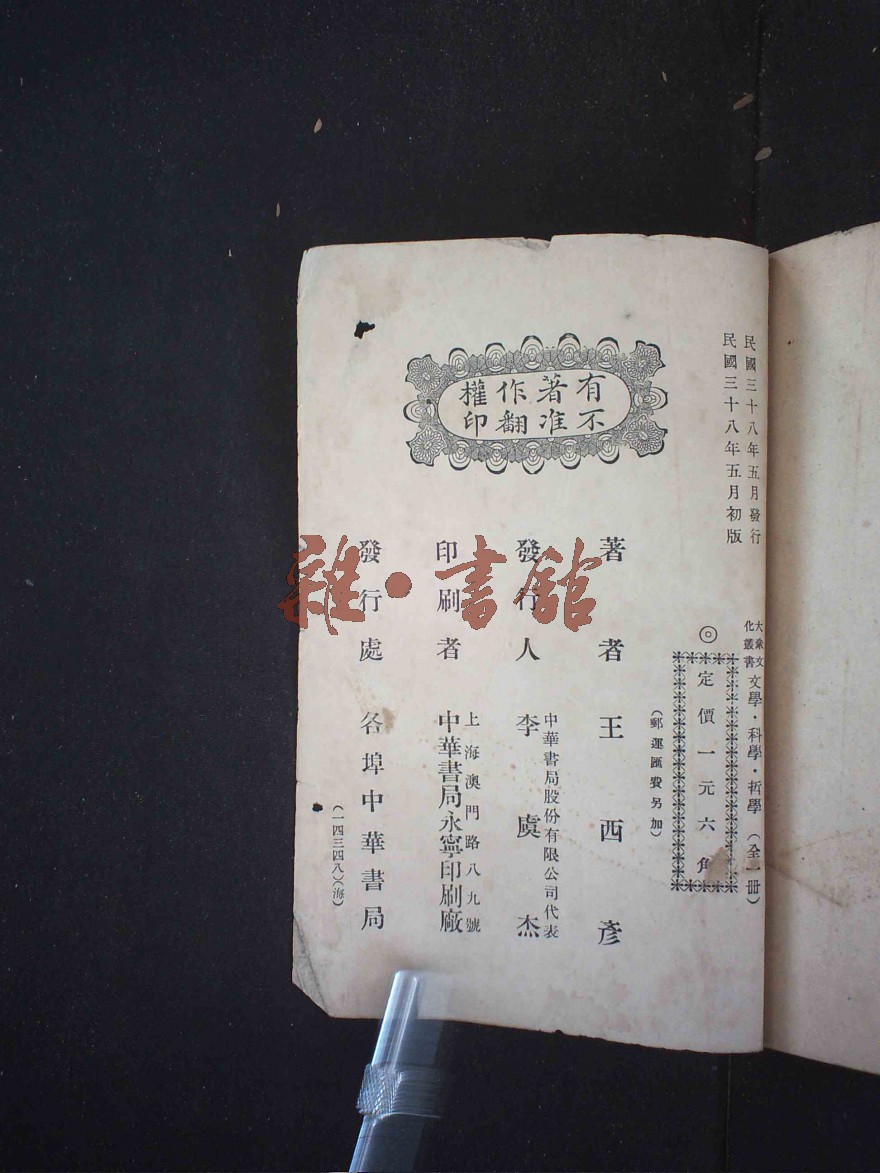 民國三十八年五月發行
民國三十八年五月初版
大衆文化叢書
文學・科學・哲學（全一冊）
◎定價一元六角
（郵運匯費另加）
有著作權
不准翻印
著者 王西彥
發行人 李虞杰
中華書局股份有限公司代表
印刷者
上海澳門路八九號
中華書局永寧印刷廠
發行處 各埠中華書局
（一四三四八）（海）
雜・書館